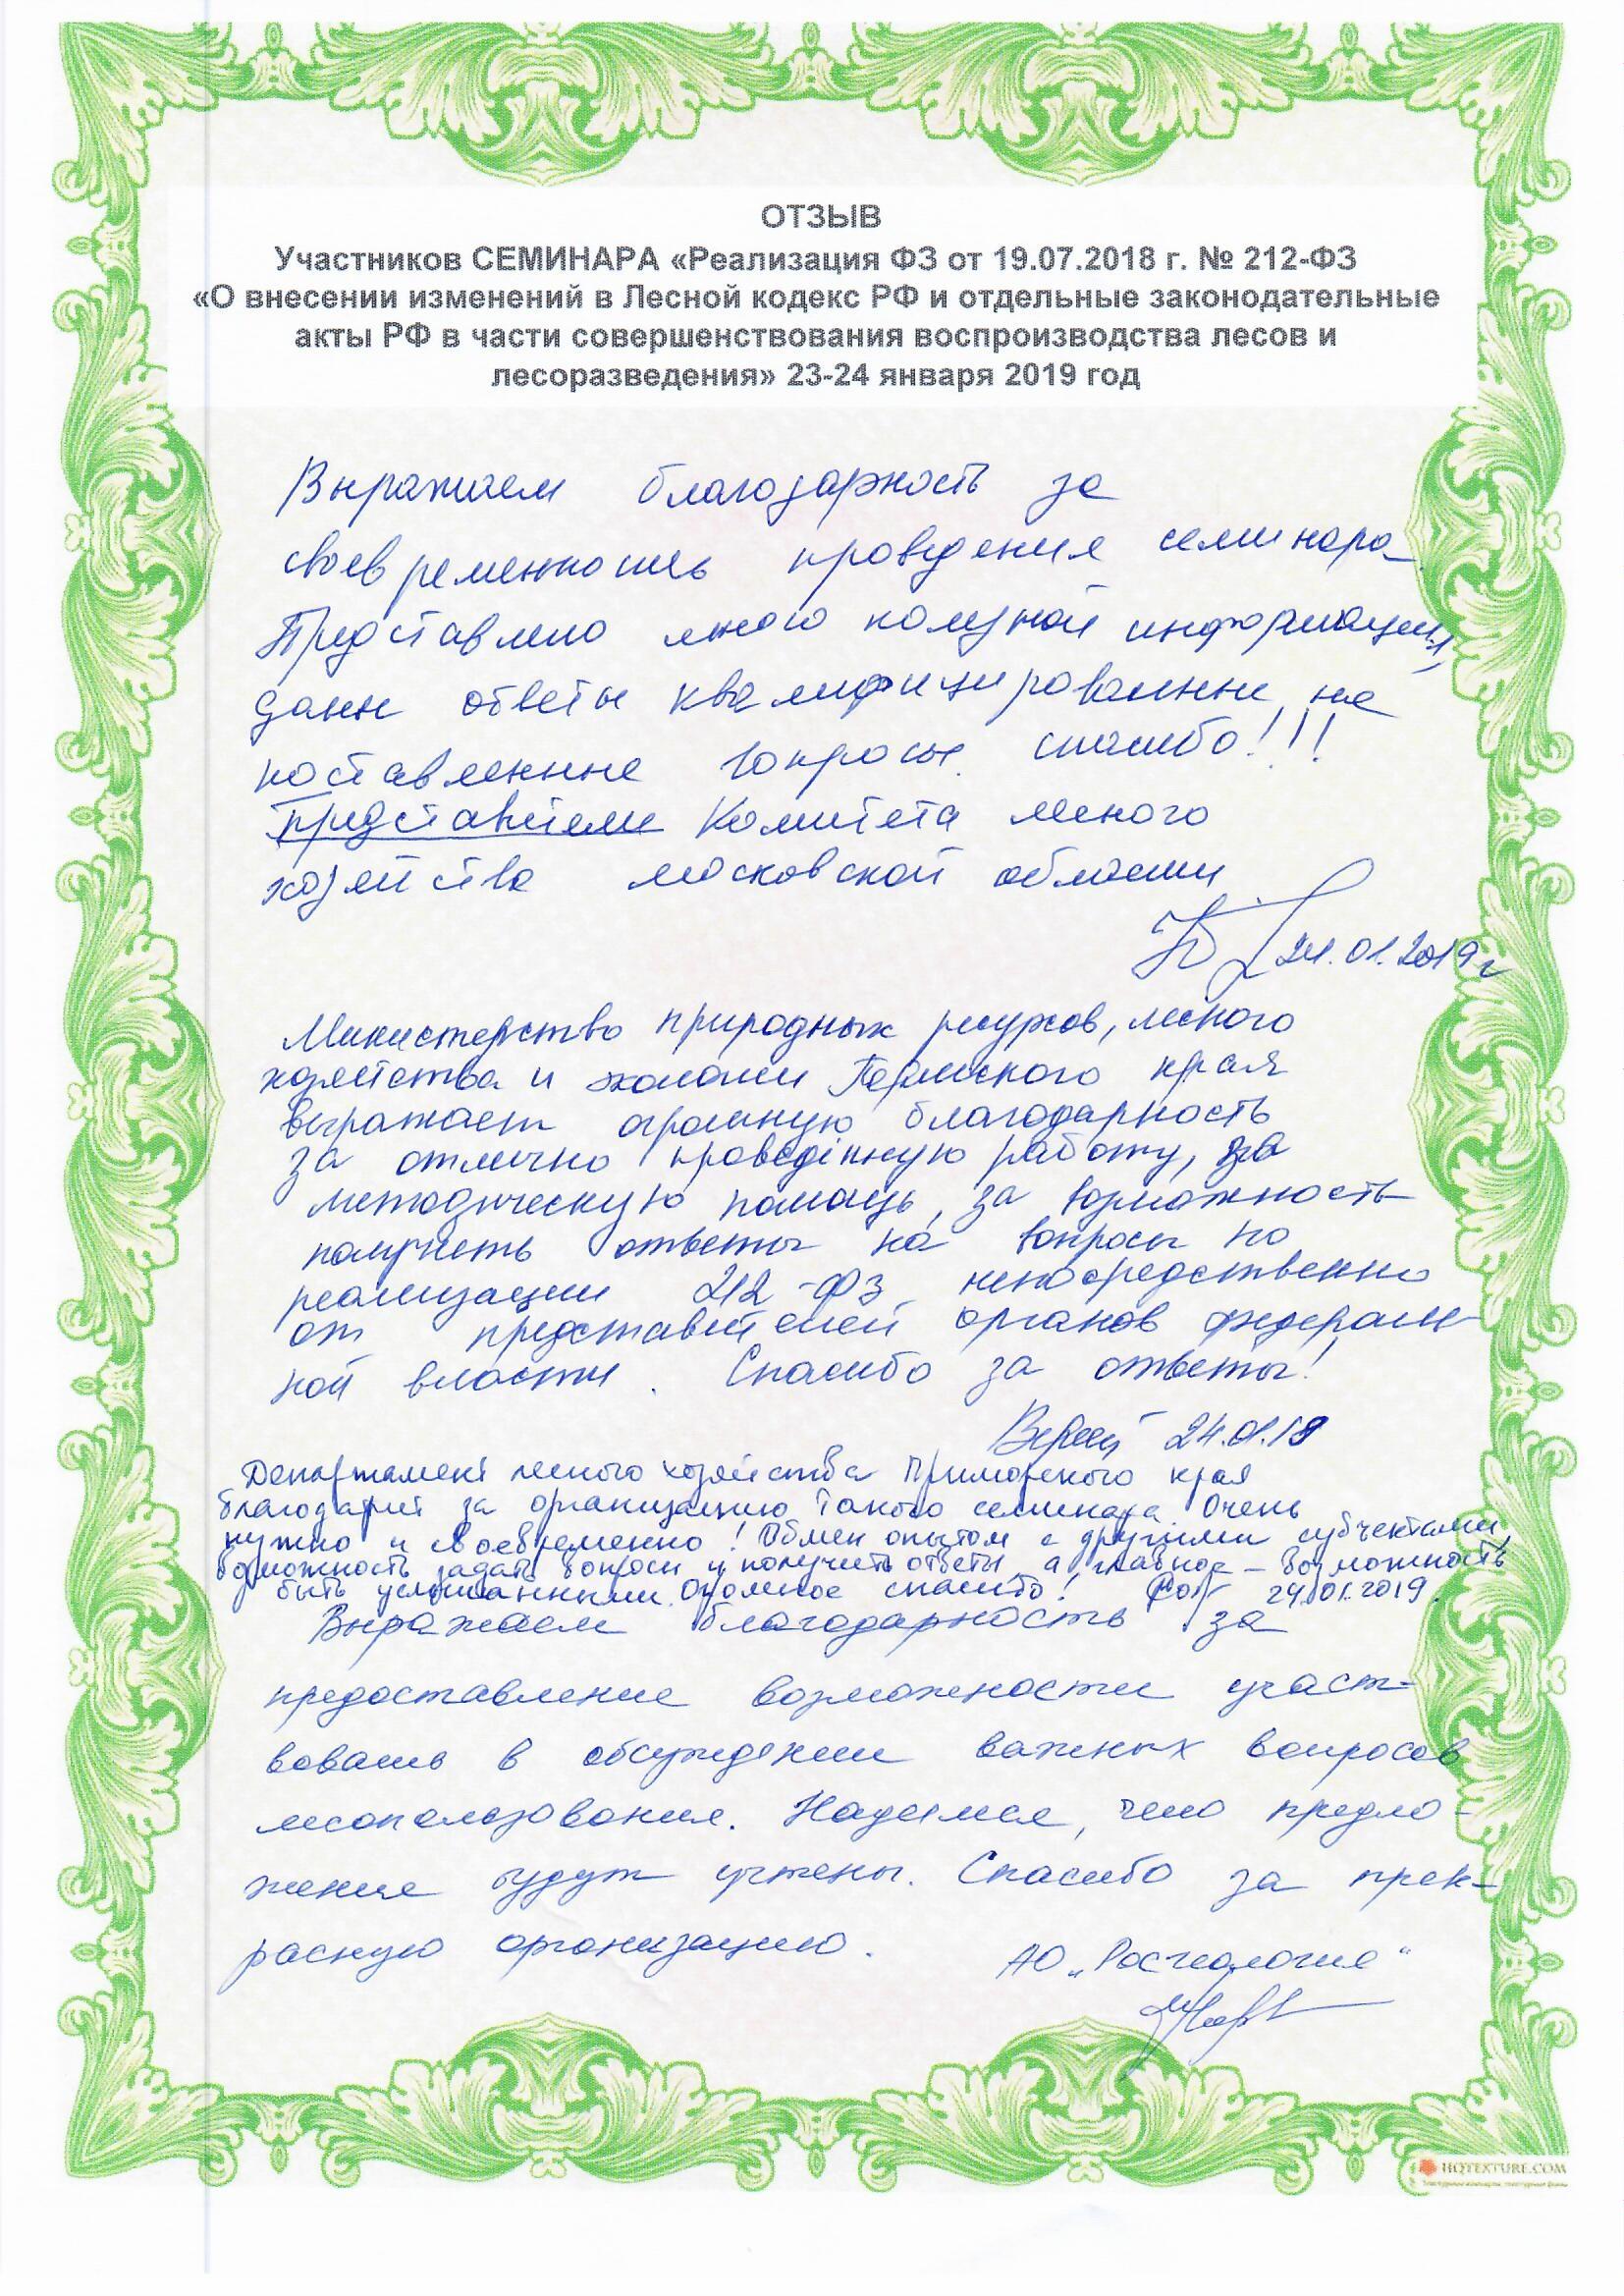 ОТЗЫВ
Участников СЕМИНАРА «Реализация ФЗ от 19.07.2018 г. № 212-ФЗ
«О внесении изменений в Лесной кодекс РФ и отдельные законодательные
акты РФ в части совершенствования воспроизводства лесов и
лесоразведения» 23-24 января 2019 год
Выражаем благодарность за
своевременность проведения семинара.
Представлено много полезной информации,
даны ответы квалифицированные на
поставленные вопросы. спасибо!!!
Представители Комитета лесного
хозяйства московской области
24.01.2019г
Министерство природных ресурсов, лесного
хозяйства и экологии Пермского края
выражает огромную благодарность
за отлично проведённую работу, за
методическую помощь, за возможность
получить ответы на вопросы по
реализации 212-ФЗ непосредственно
от представителей органов федераль-
ной власти. Спасибо за ответы!
24.01.19
Департамент лесного хозяйства Приморского края
благодарит за организацию такого семинара. Очень
нужно и своевременно! Обмен опытом с другими субъектами,
возможность задать вопросы и получить ответы, а главное – возможность
быть услышанными. Огромное спасибо! 24.01.2019.
Выражаем благодарность за
предоставление возможности участ-
вовать в обсуждении важных вопросов
лесопользования. Надеемся, что предло-
жения будут учтены. Спасибо за прек-
расную организацию.
АО „Росгеология"
HQTEXTURE.COM